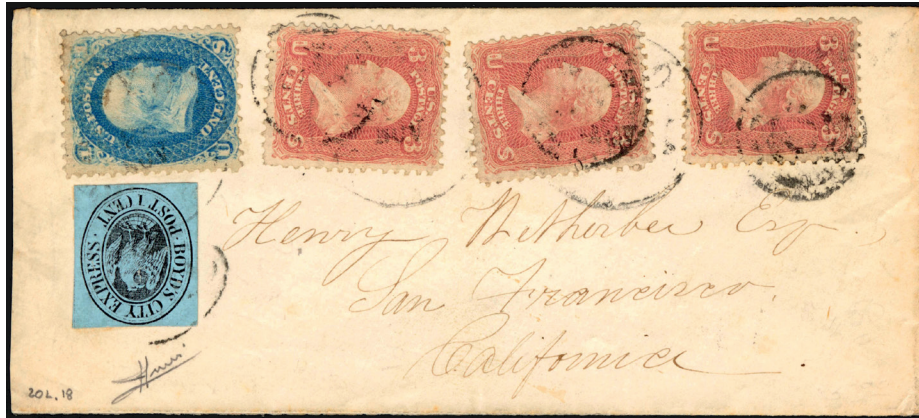 U.S. POSTAGE
ONE CENT
U S
3 U.S. POSTAGE 3
THREE CENTS
U S
3 U.S. POSTAGE 3
THREE CENTS
U S
3 U.S. POSTAGE 3
THREE CENTS
U S
BOYD'S CITY EXPRESS · POST 1 CENT ·
Henry Wetherbee Esq.
San Francisco.
California
20L.18